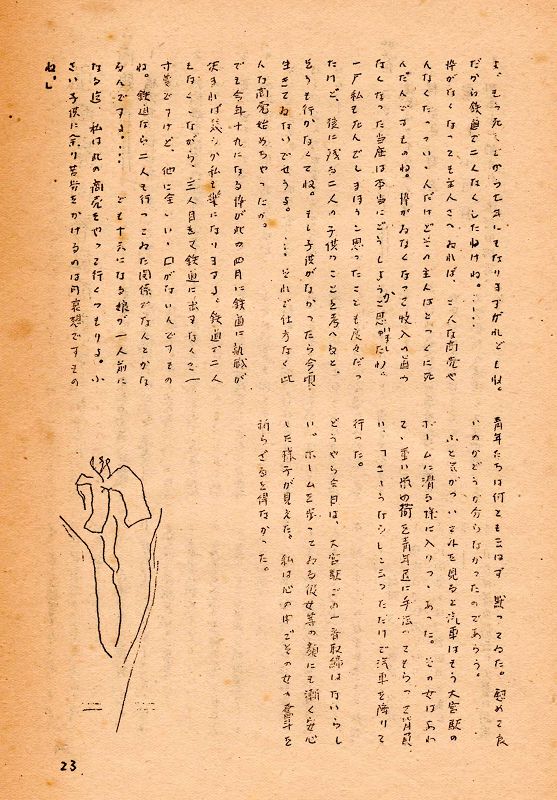 よ、もう死んでから七年にもなりますがねどもね。
だから鉄道で二人なくしたわけね。……
倅がなくなっても主人さへゐれば、こんな商売や
んなくたっていゝんだけどその主人はとっくに死
んだんですものね。倅がゐなくなって収入の道の
なくなった当座は本当にどうしようかと思ひましたね。
一戸私も死んでしまほうと思ったことも度々だっ
たけど、後に残る二人の子供のことを考へると、
そうも行かなくてね。もし子供がなかったら今頃
生きてゐないでせうよ。…。それで仕方なく此
んな商売始めちゃったが。
でも今年十九になる倅が此の四月に鉄道に就職が
決まれば幾らか私も楽になりますよ。鉄道で二人
もなくしながら、三人目まで鉄道に出すなんて一
寸変ですけど、他に全い口がないんですもの
ね。鉄道なら二人も行ってゐた関係でなんとかな
るんですよ。…。ども十六になる娘が一人前に
なる迄、私は此の商売をやって行くつもりよ。小
さい子供に余り苦労をかけるのは可哀想ですもの
ね。」
青年たちは何ても云はず、黙ってゐた。慰めて良
いのかどうか分らなかったのであらう。
ふと気がついて外を見ると汽車はもう大宮駅の
ホームに滑る様に入りつゝあった。その女はあわ
て、重い荷を青年達に手伝ってもらって背負
い、「さようなら」と云っただけで汽車を降りて
行った。
どうやら今日は、大宮駅での一斉取締はないらし
い。ホームを歩いてゐる彼女等の顔にも漸く安心
した様子が見えた。私は心の中でその女の奮斗を
祈らざるを得なかった。
23